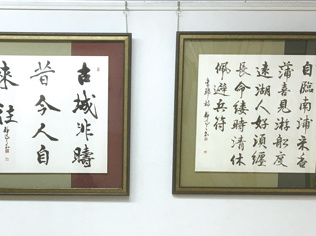 自臨南浦采香
蒲喜見游船度
遠湖人好須纏
長命縷時清休
佩避兵符
古城非疇
昔今人自
來往